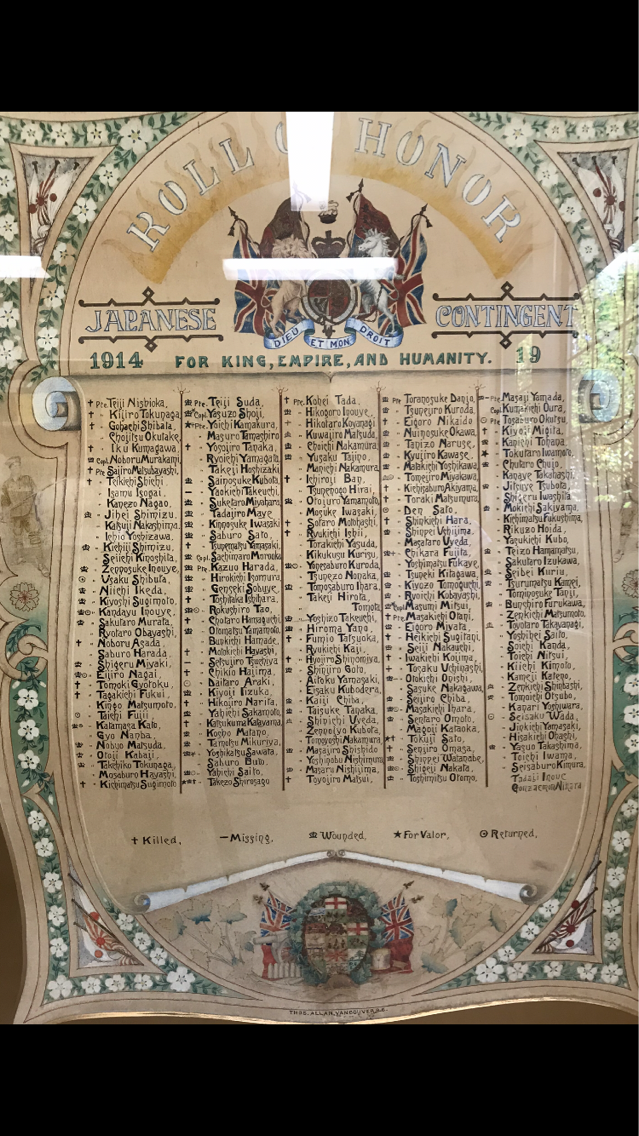 ROLL O HONOR
JAPANESE CONTINGENT
DIEU ET MON DROIT
1914 FOR KING, EMPIRE, AND HUMANITY. 19
† Pte. Teiji Nishioka,
† - Kijiro Tokunaga,
† - Gohachi Shibata,
- Chojitsu Okutake,
† - Iku Kumagawa,
Cpl. Noboru Murakami,
† Pte. Sajiro Matsubayashi,
† - Teikichi Shichi
- Isamu Isogai,
- Kanezo Nagao,
- Jihei Shimizu,
- Katsuji Nakashima,
- Ishio Yoshizawa,
- Kichiji Shimizu,
- Seiichi Kinoshita,
- Zennosuke Inouye,
- Usaku Shibuta,
- Niichi Ikeda,
- Kiyoshi Sugimoto,
- Kandayu Inouye,
- Sakutaro Murata,
- Ryotaro Obayashi,
† - Noboru Asada,
- Saburo Harada,
- Shigeru Miyaki,
- Eijiro Nagai,
† - Tomoki Gyotoku,
† - Tagakichi Fukui,
- Kingo Matsumoto,
⊙ - Taichi Fujii,
- Katamasa Kato,
- Gyo Nanba,
- Nobuo Matsuda,
- Otoji Kabaji,
- Takehiko Tokunaga,
- Mosaburo Hayashi,
† - Kichimatsu Sugimoto
Pte. Teiji Suda,
Cpl. Yasuzo Shoji,
★ Pte. Yoichi Kamakura,
- Masuro Tamashiro
† - Yosojiro Tanaka,
- Ryoichi Yamagata,
- Takeji Hoshizaki
- Sainosuke Kubota,
− - Yaokichi Takeuchi,
- Suketaro Miyahara,
- Tadajiro Maye
- Kinnosuke Iwasaki
- Saburo Sato
- Tsunematsu Yamasaki,
Cpl. Sachimaro Morooka
Pte. Kazuo Harada,
- Hirokichi Isomura,
- Genseki Sobuye,
- Toshitaka Ishihara,
- Rokushiro Tao,
† - Chotaro Hamaguchi,
- Otomatsu Yamamoto,
- Bunkichi Hamade,
- Motokichi Hayashi,
− - Setsujiro Tsuchiya
† - Chikai Hajima,
- Daitaro Araki,
- Kiyoji Iizuka,
- Hikojiro Narita,
- Yahichi Sakamoto,
† - Katsukuma Katayama,
- Kosho Matano,
- Tamotsu Mikuriya,
- Yoshikatsu Sawata,
- Sakuro Buto,
- Yahichi Saito,
- Takezo Shirasago
† Pte. Kohei Tada,
- Hikogoro Inouye,
† - Hikotaro Koyanagi
- Kuwajiro Matsuda,
- Choichi Nakamura,
- Yusaku Tajino,
- Manichi Nakamura,
† - Ichiroji Ban,
- Tsunenogo Hirai,
- Otojuro Yamamoto,
- Mosuke Iwasaki,
† - Sotaro Motohashi,
† - Ryukichi Ishii,
- Torakichi Yasuda,
- Kikukusu Kurisu,
- Yonesaburo Kuroda,
- Tsunezo Nonaka,
- Tomosaburo Ihara,
- Takeji Hirota
Tomota
- Yoshizo Takeuchi,
- Hiroma Yano,
- Fumio Tatsuoka,
- Ryukichi Kaji,
- Hyojiro Shinomiya,
- Shinjiro Goto,
- Aitoku Yamasaki,
- Eisaku Kubodera,
- Kaiji Chiba,
- Taisuke Tanaka,
- Shinichi Uyeda,
- Zennojyo Kubota,
- Tomoyoshi Nakamura,
- Masajiro Shishido
- Yoshinobu Nishimura
- Masaru Nishijima,
- Toyojiro Matsui,
Pte. Toranosuke Danjo,
- Tsunejiro Kuroda,
† - Eigoro Nikaido
- Nuinosuke Okawa,
- Tanizo Naruse,
- Kyujiro Kawase,
- Matakichi Yoshikawa,
- Tomejiro Miyakawa,
† - Kichisaburo Akiyama,
† - Toraki Matsumura,
⊙ - Den Sato,
† - Shinkichi Hara,
- Shinpei Uchijima,
- Masataro Uyeda,
- Chikara Fujita,
- Yoshimatsu Fukaye,
- Tsuneki Kitagawa,
- Kiyozo Tomoguchi,
- Ryoichi Kobayashi,
Cpl. Masumi Mitsui,
† Pte. Masakichi Otani,
- Eigoro Miyata,
† - Heikichi Sugitani,
- Seiji Nakauchi,
† - Iwakichi Kojima,
† - Totaku Uchinashi,
- Otokichi Onishi,
- Sasuke Nakagawa,
- Seijiro Chiba,
- Masakichi Ihara,
- Sentaro Omoto,
- Magoji Kato,
† - Tokuji Sato,
† - Senjiro Omasa,
- Shinpei Watanabe,
- Shigeji Nakata,
- Toshimitsu Otomo,
Pte. Masaji Yamada,
Cpl. Kumakichi Oura,
⊙ Pte. Tosaburo Okutsu,
† - Kiyoji Migita,
† - Kanichi Tohana,
★ - Tokutaro Iwamoto,
- Chutaro Chujo,
- Kanaye Takahashi,
- Jitsuye Tsubota,
- Shigeru Iwashita,
- Mokichi Sakiyama,
- Kichimatsu Fukushima,
- Rikuzo Hoida,
- Yasukichi Kubo,
- Teizo Hamamatsu,
- Sakutaro Izukawa,
- Seibei Kuriu,
- Tsurumatsu Kamei,
- Tominosuke Tanji,
- Bunshiro Furukawa,
- Zenkichi Matsumoto,
- Toyotaro Takayanagi,
- Yoshihei Saito,
- Soichi Kanda,
- Toichi Nitsui,
- Kiichi Kimoto,
- Kameji Kateno,
- Zenkichi Shintashi,
- Tomojiro Otsubo,
- Kanari Yoshiwara,
⊙ - Seisaku Wada,
- Jinkichi Yamasaki,
- Hisakichi Ohashi,
- Yasuo Takashima,
- Toichi Iwama,
- Seisaburo Kimura,
Tadaji Inoue
† Killed, − Missing, Wounded, ★ For Valor, ⊙ Returned,
THOS. ALLAN, VANCOUVER, B.C.